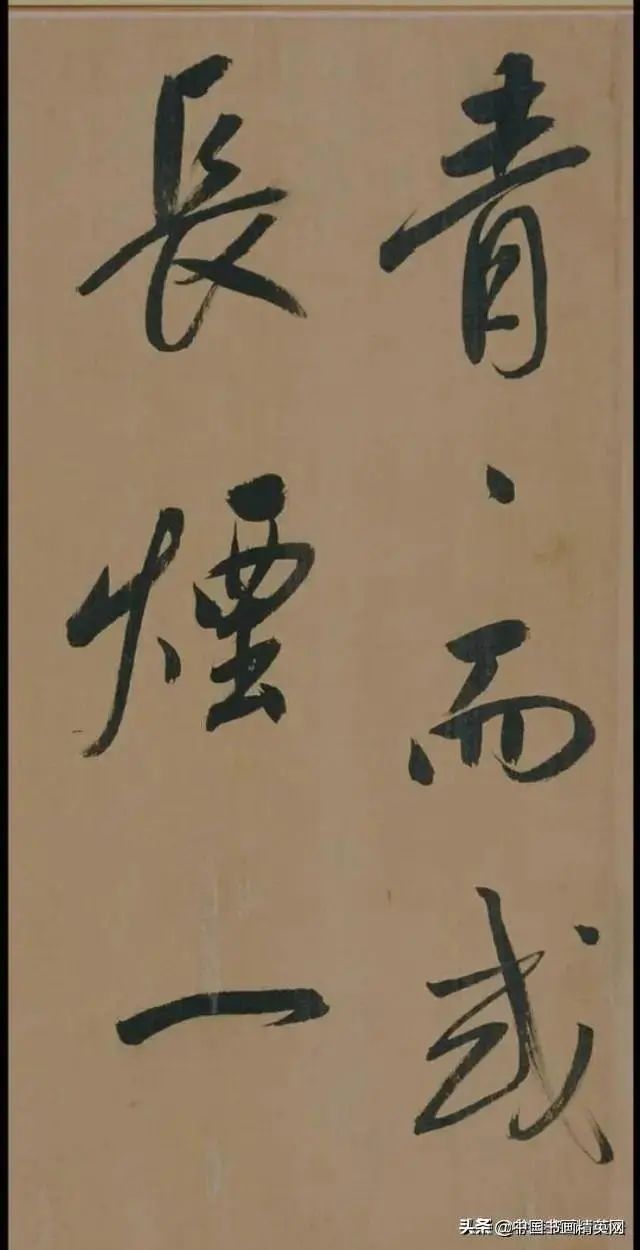 青、而或
長煙一
头条 @中国书画精英网